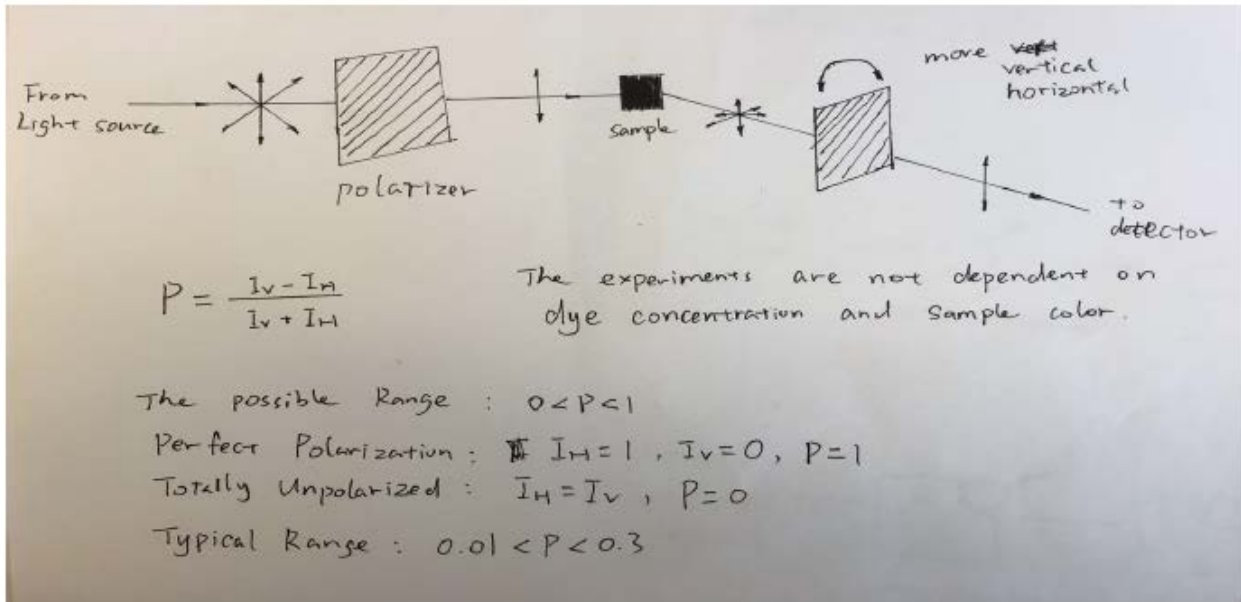 From
Light source
polarizer
sample
more
vertical
horizontal
to
detector
P = (I_V - I_H) / (I_V + I_H)
The experiments are not dependent on
dye concentration and sample color.
The possible Range : 0 < P < 1
Perfect Polarization : I_H = 1 , I_V = 0, P = 1
Totally Unpolarized : I_H = I_V , P = 0
Typical Range : 0.01 < P < 0.3